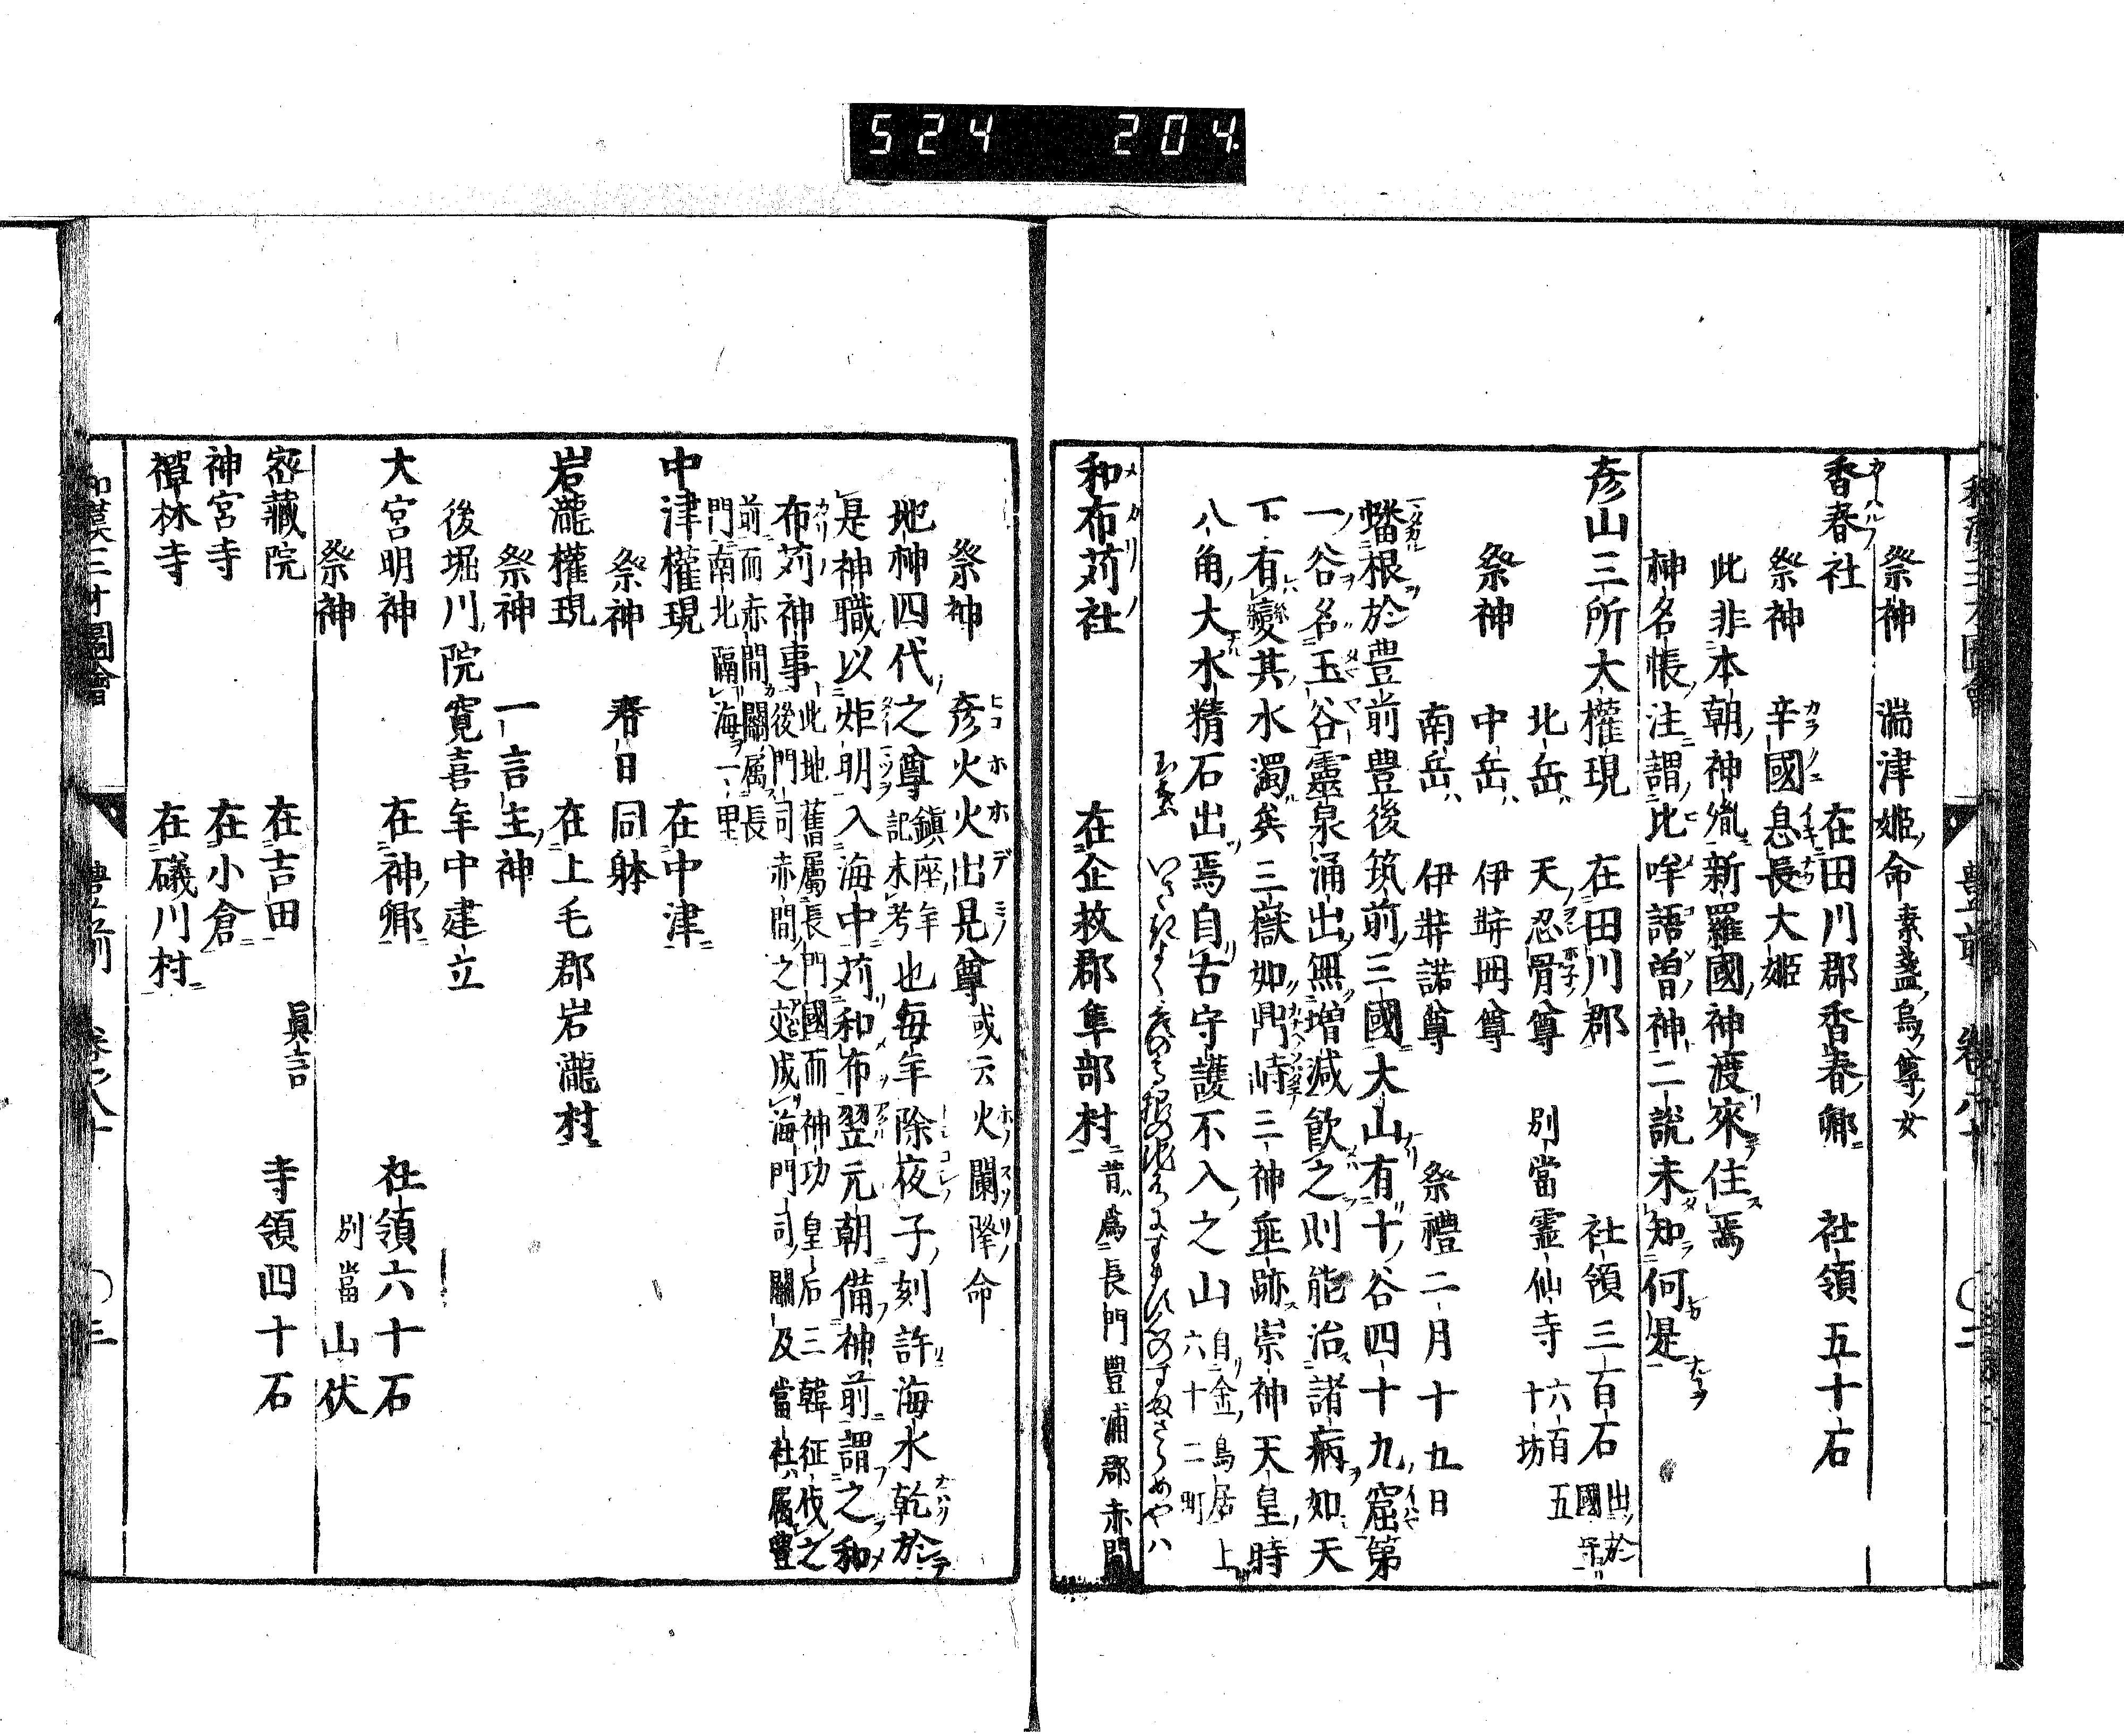 524 204.
祭神 湍津姫命 素盞烏尊女
香春社 在田川郡香春郷 社領五十石
祭神 辛國息長大姫
此非本朝神胤新羅國神渡來住焉
神名帳注謂比咩語曽神二説未知何是
彦山三所大權現 在田川郡 社領三百石 出於國守
北岳 天忍骨尊 別當霊仙寺 六百五十坊
祭神 中岳 伊弉冊尊
南岳 伊弉諾尊 祭禮二月十九日
蟠根於豊前豊後筑前三國大山有十谷四十九窟第
一谷名玉谷靈泉涌出無増減飲之則能治諸病如天
下有變其水濁矣三嶽如鼎峙三神垂跡崇神天皇時
八角大水精石出焉自古守護不入之山 自金鳥居上六十二町
和布苅社 在企救郡隼部村 昔爲長門豊浦郡赤間
祭神 彦火火出見尊 或云火闌降命
地神四代之尊 鎮座年記未考 也毎年除夜子刻許海水乾於
是神職以炬明入海中苅和布翌元朝備神前謂之和
布苅神事 此地舊屬長門國而神功皇后三韓征伐之後門司赤間之交成海門司關及當社屬豊
前而赤間關屬長門南北隔海一里
中津權現 在中津
祭神 春日同躰
岩瀧權現 在上毛郡岩瀧村
祭神 一言主神
後堀川院寛喜年中建立
大宮明神 在神郷 社領六十石
祭神 別當山伏
密藏院 在吉田 眞言 寺領四十石
神宮寺 在小倉
禪林寺 在礒川村